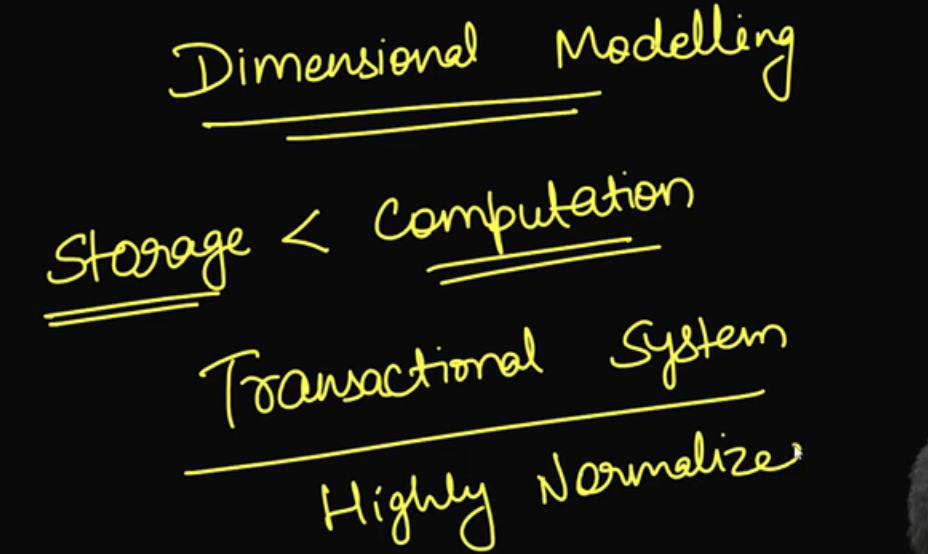 Dimensional Modelling
Storage < Computation
Transactional System
Highly Normalize